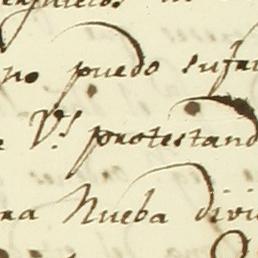 no puedo sufri
V.s protestand
na Nueba divi